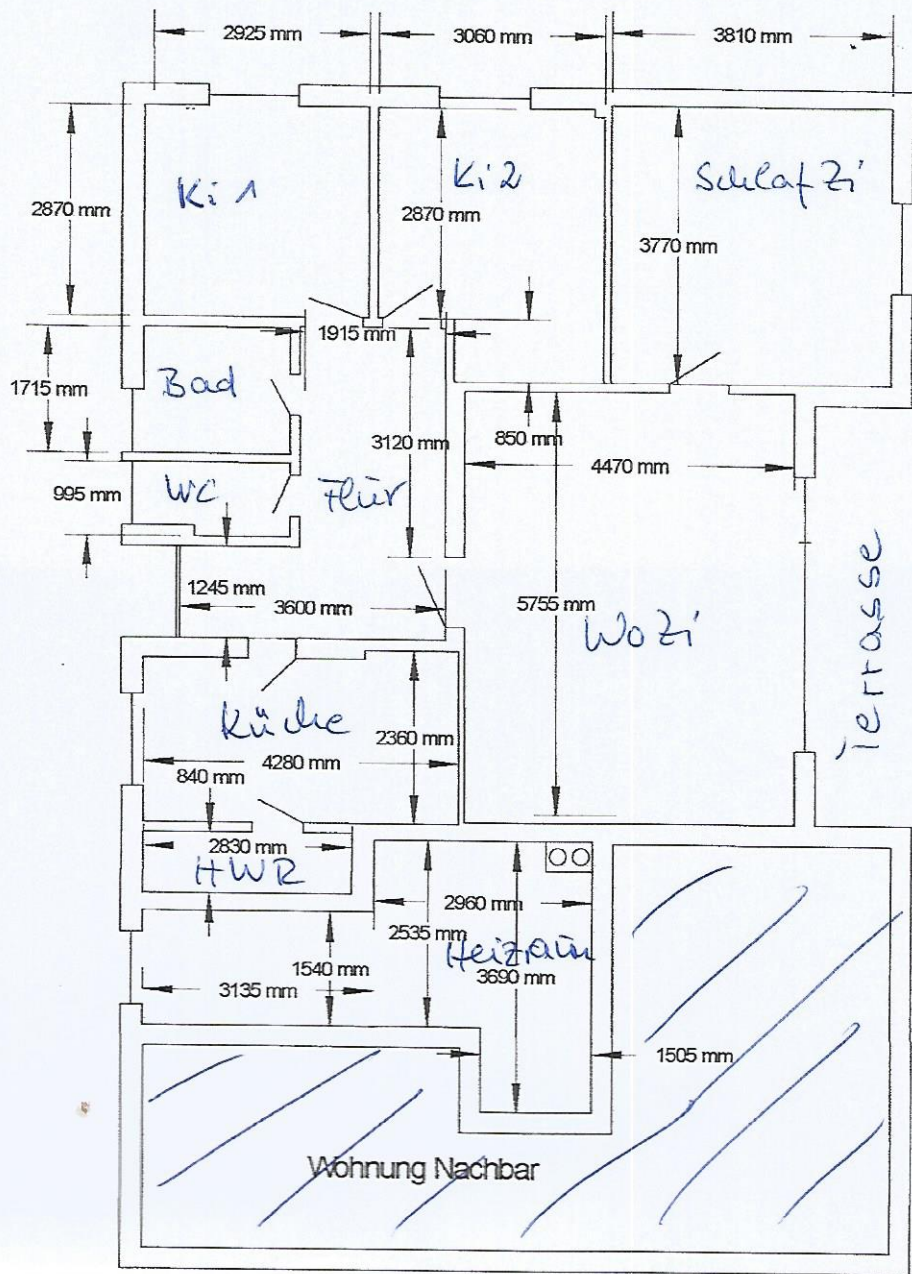 2925 mm
3060 mm
3810 mm
Ki 1
Ki 2
Schlaf Zi
2870 mm
2870 mm
3770 mm
1915 mm
1715 mm
Bad
3120 mm
850 mm
4470 mm
995 mm
WC
Flur
1245 mm
3600 mm
5755 mm
WoZi
Terrasse
Küche
2360 mm
4280 mm
840 mm
2830 mm
HWR
2960 mm
2535 mm
Heizraum
1540 mm
3690 mm
3135 mm
1505 mm
Wohnung Nachbar